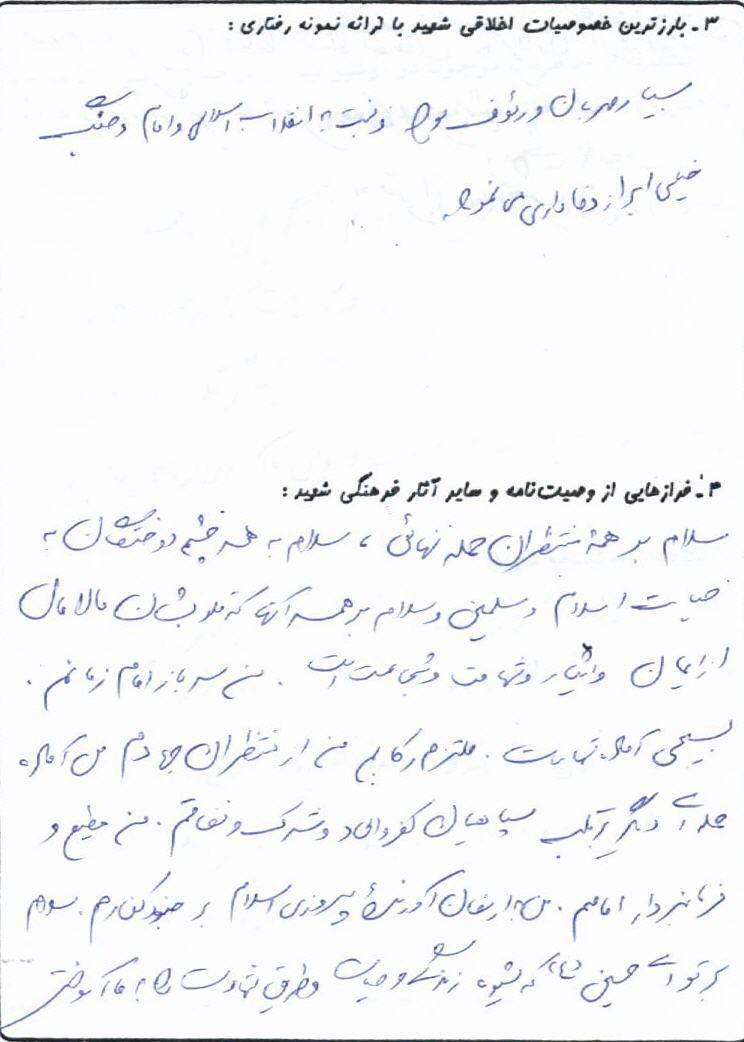 ۳ـ بارزترین خصوصیات اخلاقی شهید با ارائه نمونه رفتاری :
بسیار مهربان و رئوف بوده و نسبت به انقلاب اسلامی و امام و جنگ
خیلی ابراز وفاداری می نموده
۴ـ فرازهایی از وصیت‌نامه و سایر آثار فرهنگی شهید :
سلام بر همهٔ منتظران حمله نهائی ، سلام به همه چشم دوختگان به
حیات اسلام و مسلمین و سلام بر همه آنها که قلوبشان مالامال
از ایمان و ایثار و شهامت و شجاعت است . من سرباز امام زمانم .
بسیجی آماده شهادت . ملتزم رکابم من از منتظران جهادم من آماده
حمله ای دیگر بر قلب سپاهیان کفر و الحاد و شرک و نفاقم . من مطیع و
فرمانبردار امامم . من ارمغان آورندهٔ پیروزی اسلام بر جنود کفارم . سلام
بر تو ای حسین (ع) که شیوه زندگی و حیات و طریق شهادت را به ما آموختی